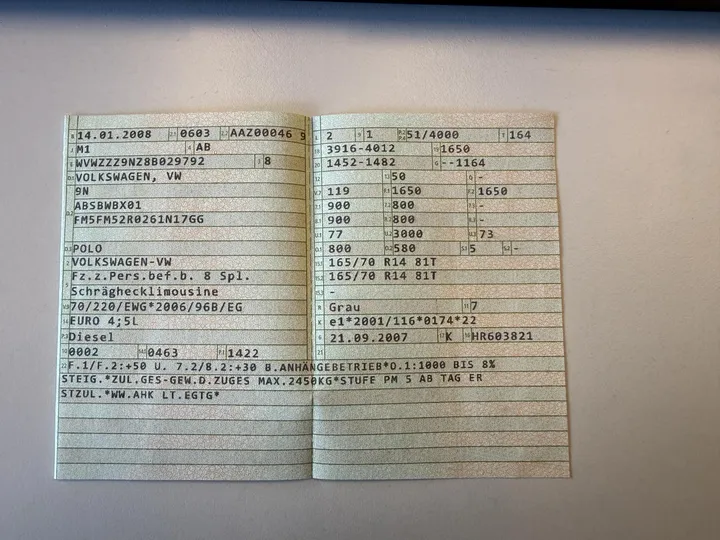 14.01.2008 0603 AAZ00046 9
M1 AB
WVWZZZ9NZ8B029792 8
VOLKSWAGEN, VW
9N
ABSBWBX01
FM5FM52R0261N17GG
POLO
VOLKSWAGEN-VW
Fz.z.Pers.bef.b. 8 Spl.
Schräghecklimousine
70/220/EWG*2006/96B/EG
EURO 4;5L
Diesel
0002 0463 1422
2 1 51/4000 164
3916-4012 1650
1452-1482 --1164
50 -
119 1650 1650
900 800 -
900 800 -
77 3000 73
800 580 5 -
165/70 R14 81T
165/70 R14 81T
-
Grau 7
e1*2001/116*0174*22
21.09.2007 K HR603821
F.1/F.2:+50 U. 7.2/8.2:+30 B.ANHÄNGEBETRIEB*O.1:1000 BIS 8%
STEIG.*ZUL.GES-GEW.D.ZUGES MAX.2450KG*STUFE PM 5 AB TAG ER
STZUL.*WW.AHK LT.EGTG*